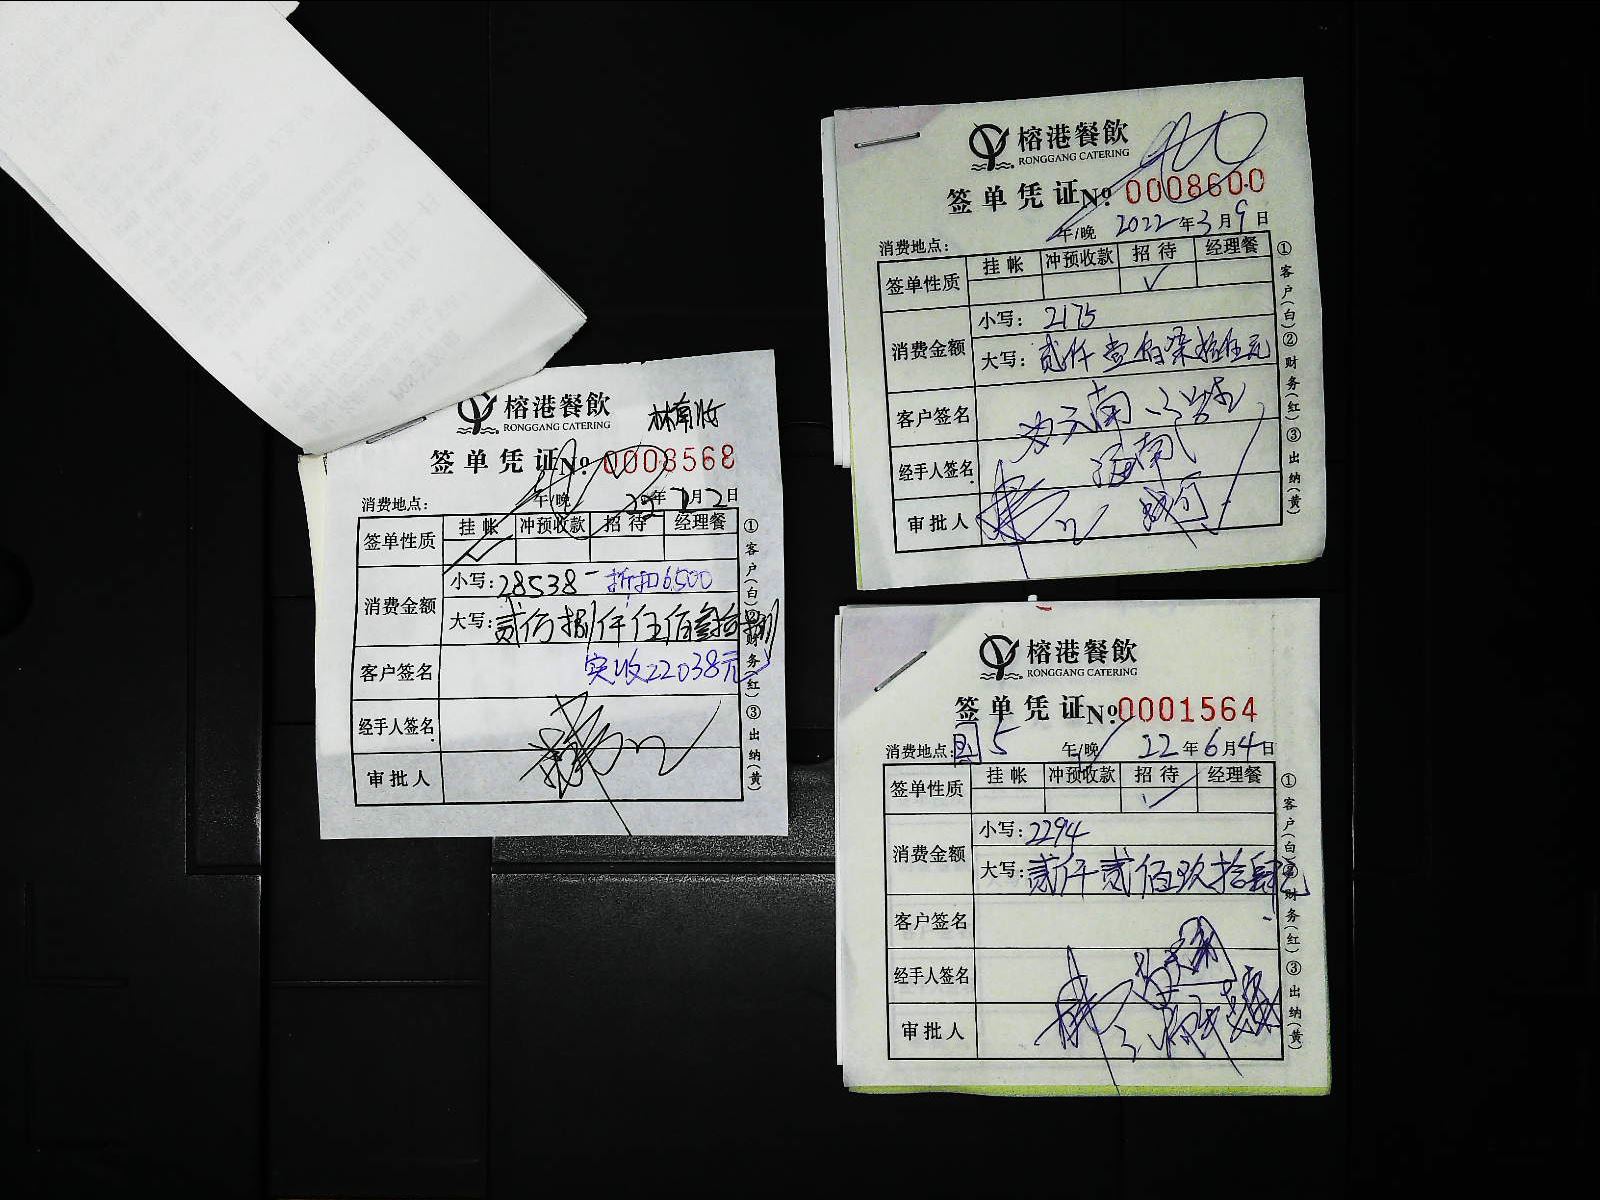 榕港餐飲
林南妆
RONGGANG CATERING
签单凭证 No. 0008568
消费地点: 午/晚 22年 月2日
签单性质 挂帐 冲预收款 招待 经理餐
消费金额 小写: 28538- 折扣6500
大写: 贰万捌仟伍佰叁拾捌
客户签名 实收22038元
经手人签名
审批人
①客户(白)②财务(红)③出纳(黄)
榕港餐飲
RONGGANG CATERING
签单凭证 No. 0008600
消费地点: 午/晚 2022年3月9日
签单性质 挂帐 冲预收款 招待 经理餐
✓
消费金额 小写: 2175
大写: 贰仟壹佰柒拾伍元
客户签名
经手人签名
审批人
①客户(白)②财务(红)③出纳(黄)
榕港餐飲
RONGGANG CATERING
签单凭证 No. 0001564
消费地点: 5 午/晚 22年6月4日
签单性质 挂帐 冲预收款 招待 经理餐
✓
消费金额 小写: 2294
大写: 贰仟贰佰玖拾肆元
客户签名
经手人签名
审批人
①客户(白)②财务(红)③出纳(黄)